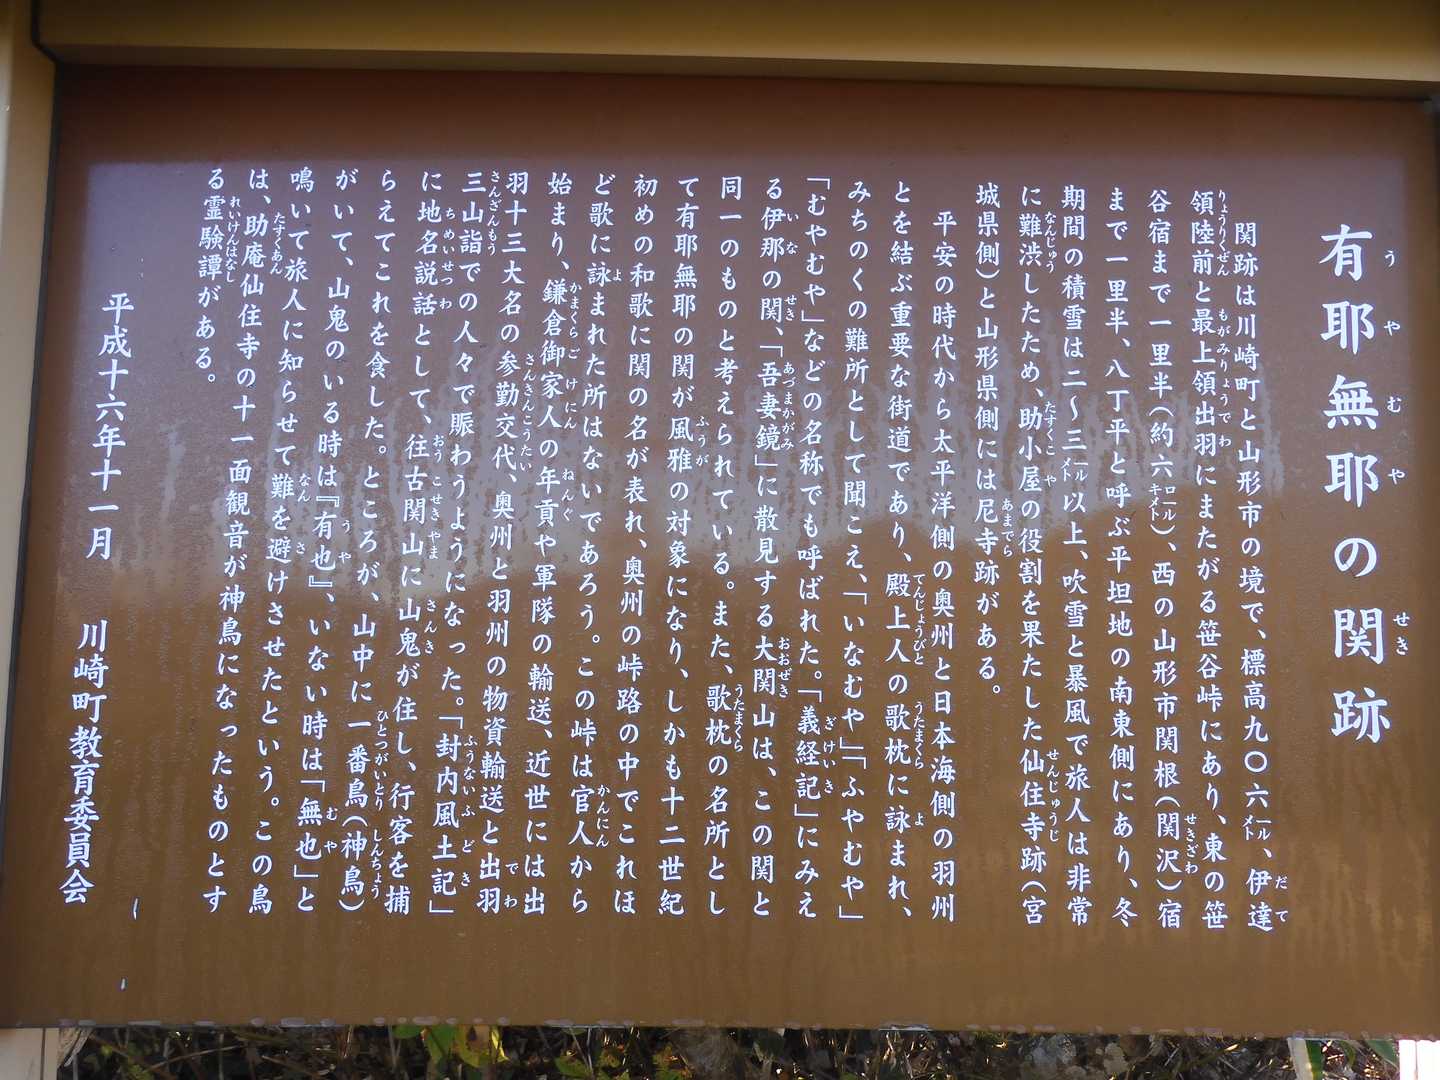 有耶無耶の関跡
関跡は川崎町と山形市の境で、標高九〇六メートル、伊達
領陸前と最上領出羽にまたがる笹谷峠にあり、東の笹
谷宿まで一里半（約六キロメートル）、西の山形市関根（関沢）宿
まで一里半、八丁平と呼ぶ平坦地の南東側にあり、冬
期間の積雪は二～三メートル以上、吹雪と暴風で旅人は非常
に難渋したため、助小屋の役割を果たした仙住寺跡（宮
城県側）と山形県側には尼寺跡がある。
平安の時代から太平洋側の奥州と日本海側の羽州
とを結ぶ重要な街道であり、殿上人の歌枕に詠まれ、
みちのくの難所として聞こえ、「いなむや」「ふやむや」
「むやむや」などの名称でも呼ばれた。「義経記」にみえ
る伊那の関、「吾妻鏡」に散見する大関山は、この関と
同一のものと考えられている。また、歌枕の名所とし
て有耶無耶の関が風雅の対象になり、しかも十二世紀
初めの和歌に関の名が表れ、奥州の峠路の中でこれほ
ど歌に詠まれた所はないであろう。この峠は官人から
始まり、鎌倉御家人の年貢や軍隊の輸送、近世には出
羽十三大名の参勤交代、奥州と羽州の物資輸送と出羽
三山詣での人々で賑わうようになった。「封内風土記」
に地名説話として、往古関山に山鬼が住し、行客を捕
らえてこれを食した。ところが、山中に一番鳥（神鳥）
がいて、山鬼のいる時は『有也』、いない時は「無也」と
鳴いて旅人に知らせて難を避けさせたという。この鳥
は、助庵仙住寺の十一面観音が神鳥になったものとす
る霊験譚がある。
平成十六年十一月　川崎町教育委員会